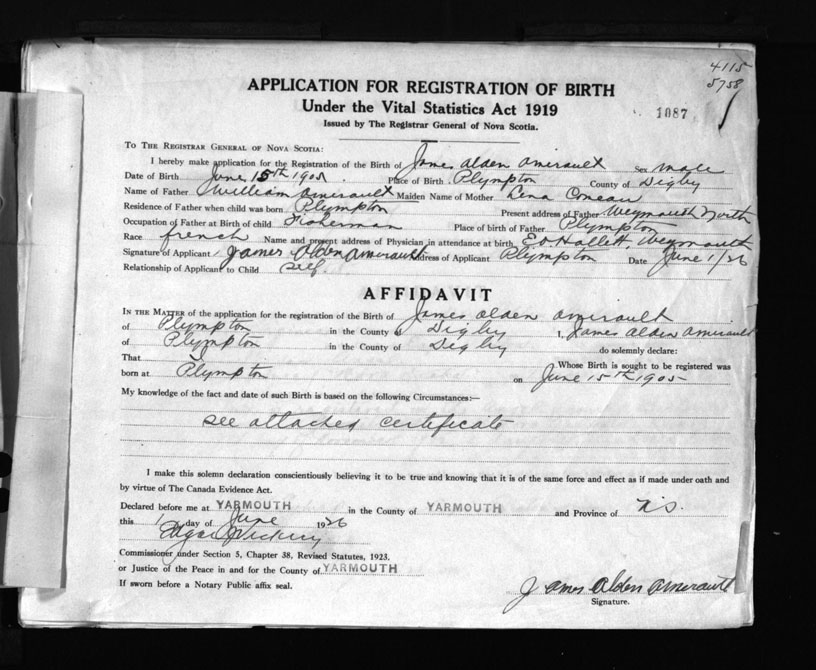 4115
5758
APPLICATION FOR REGISTRATION OF BIRTH
Under the Vital Statistics Act 1919
1087
Issued by The Registrar General of Nova Scotia.
To The Registrar General of Nova Scotia:
I hereby make application for the Registration of the Birth of James Alden Amirault Sex male
Date of Birth June 15th 1905 Place of Birth Plympton County of Digby
Name of Father William Amirault Maiden Name of Mother Lena Comeau
Residence of Father when child was born Plympton Present address of Father Weymouth North
Occupation of Father at Birth of child Fisherman Place of birth of Father Plympton
Race french Name and present address of Physician in attendance at birth Hallett, Weymouth
Signature of Applicant James Alden Amirault Address of Applicant Plympton Date June 1/26
Relationship of Applicant to Child self.
AFFIDAVIT
In the Matter of the application for the registration of the Birth of James Alden Amirault
of Plympton in the County of Digby I, James Alden Amirault
of Plympton in the County of Digby do solemnly declare:
That I Whose Birth is sought to be registered was
born at Plympton on June 15th 1905
My knowledge of the fact and date of such Birth is based on the following Circumstances:—
see attached certificate
I make this solemn declaration conscientiously believing it to be true and knowing that it is of the same force and effect as if made under oath and
by virtue of The Canada Evidence Act.
Declared before me at YARMOUTH in the County of YARMOUTH and Province of N.S.
this 1 day of June 1926
Commissioner under Section 5, Chapter 38, Revised Statutes, 1923.
or Justice of the Peace in and for the County of YARMOUTH
If sworn before a Notary Public affix seal.
James Alden Amirault
Signature.